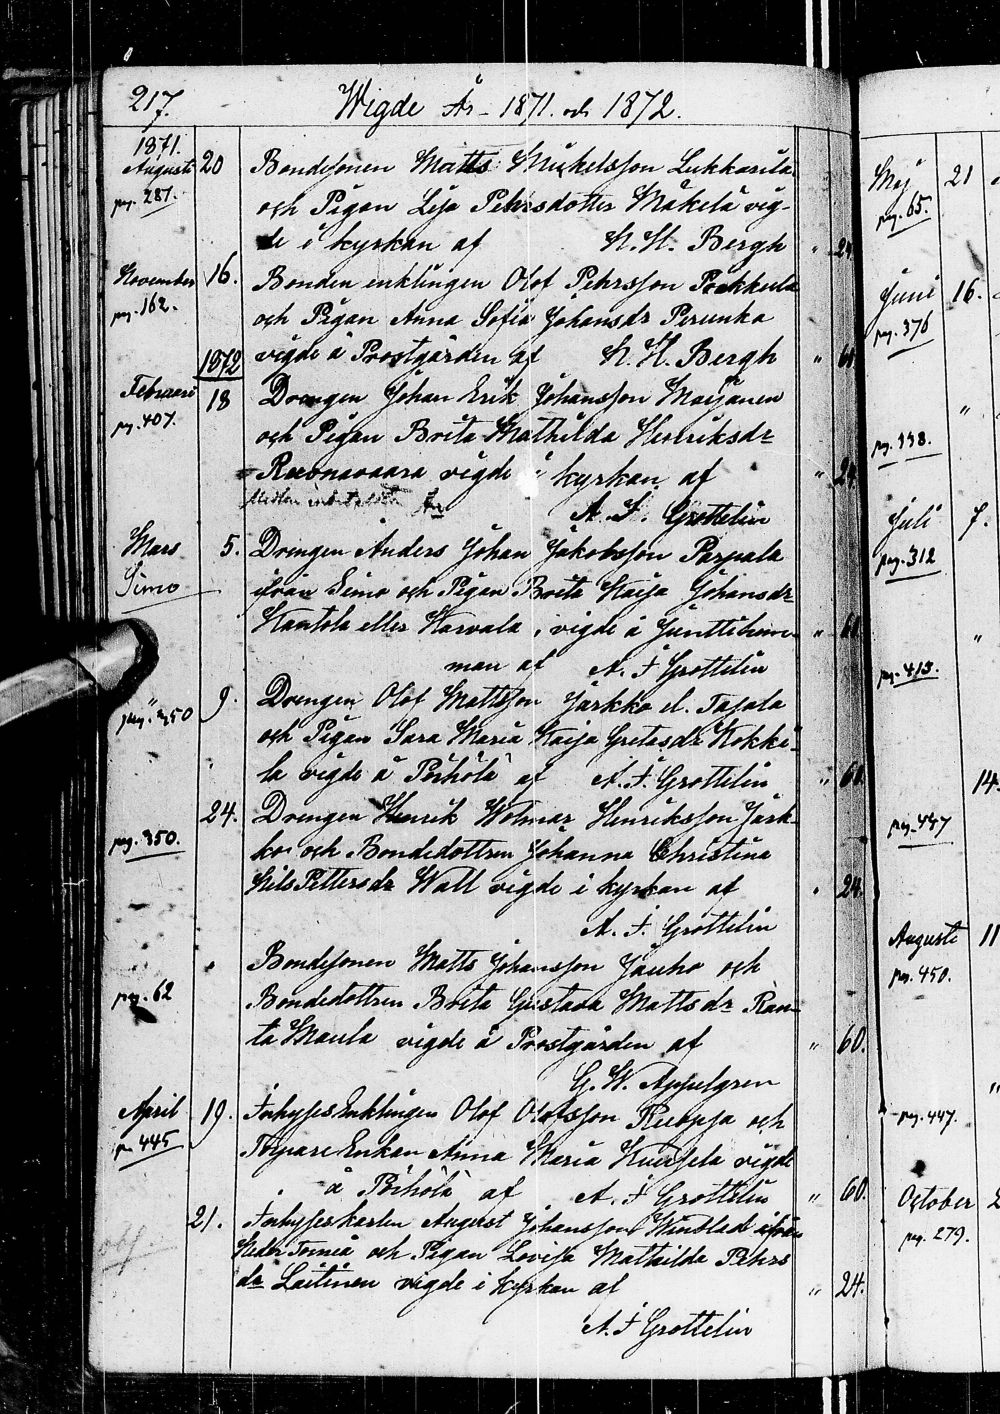 217. Wigde År 1871. och 1872.
1871.
Augusti 20 Bondesonen Matts Mickelsson Lukkarila
pag. 281. och Pigan Lisa Pehrsdotter Mäkelä vig-
de i kyrkan af N. H. Bergh " 24
November 16. Bonden enklingen Olof Pehrsson Pakkula
pag. 162. och Pigan Anna Sofia Johansdr Perunka
vigde å Prostgården af N. H. Bergh " 60
1872
Februari 18 Drengen Johan Erik Johansson Maijanen
pag. 407. och Pigan Brita Mathilda Henriksdr
vigde i kyrkan af " 24
A. F. Grottelin
Mars 5. Drengen Anders Johan Jakobsson Parpala
Simo ifrån Simo och Pigan Brita Kaisa Johansdr
Kantola eller Karvala, vigde å Junttihem- " 60
man af A. F. Grottelin
9. Drengen Olof Mattsson Jarkko el. Tapala
pag. 350 och Pigan Sara Maria Kaisa Gretasdr Kokki-
la vigde å Pörhölä af A. F. Grottelin " 60
24. Drengen Henrik Wolmar Henriksson Jark-
pag. 350. ko och Bondedottren Johanna Christina
Nils Pettersdr Wall vigde i kyrkan af " 24.
A. F. Grottelin
" Bondesonen Matts Johansson Jauho och
pag. 62 Bondedottren Brita Gustava Mattsdr Ran-
ta Maula vigde å Prostgården af " 60.
G. W. Appelgren
April 19. Inhyses Enklingen Olof Olofsson Ruopsa och
pag. 445 Torpare Enkan Anna Maria Kuersela vigde
å Pörhölä af A. F. Grottelin " 60.
21. Inhyseskarlen August Johansson Winblad ifrån
Neder Torneå och Pigan Lovisa Mathilda Pehrs
dr Laitinen vigde i kyrkan af " 24.
A. F. Grottelin
Maj 21
pag. 65.
Juni 16.
pag. 376
"
pag. 338.
Juli 7.
pag. 312
"
pag. 413.
14.
pag. 447
Augusti 11
pag. 450.
"
pag. 447.
October 2
pag. 279.